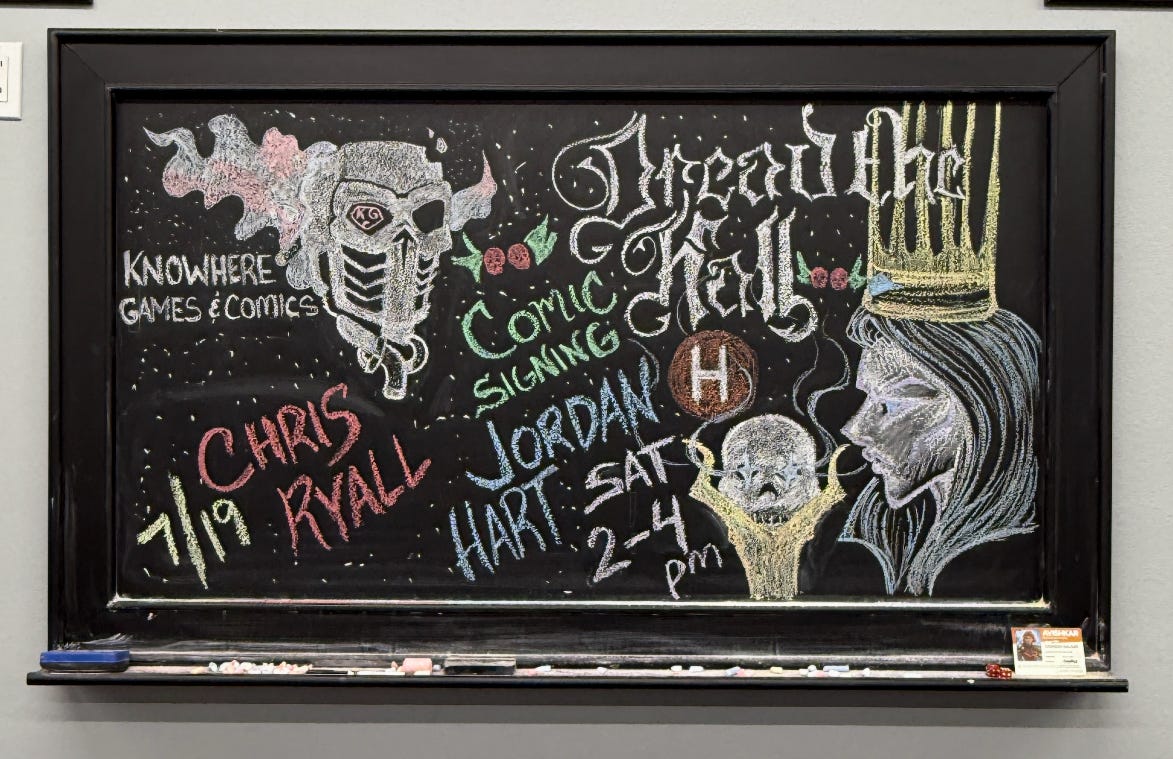 Dread the
Hall
H
KG
KNOWHERE
GAMES & COMICS
COMIC
SIGNING
CHRIS
RYALL
JORDAN
HART
7/19
SAT
2-4
pm
AVISHKAR